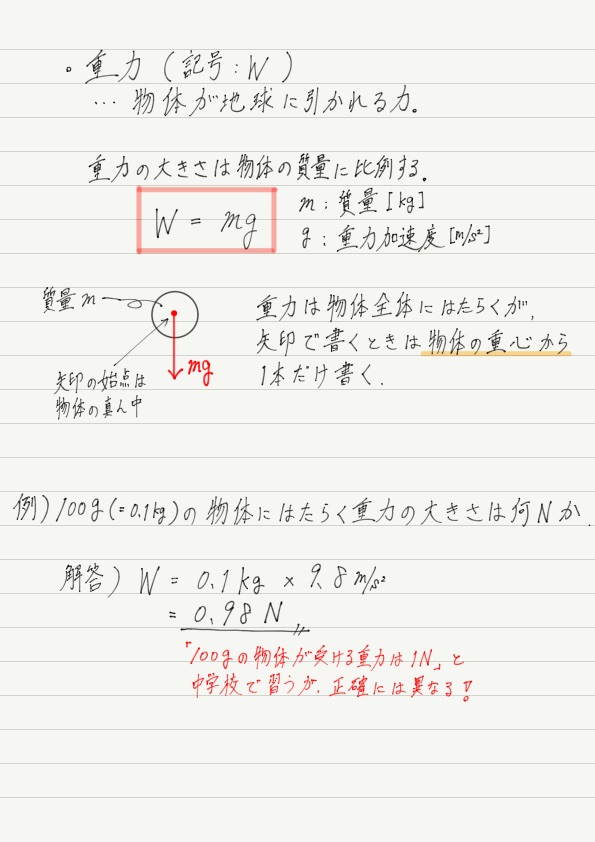 。重力 (記号:W)
… 物体が地球に引かれる力。
重力の大きさは物体の質量に比例する。
W = mg
m : 質量 [kg]
g : 重力加速度 [m/s²]
質量 m
mg
矢印の始点は
物体の真ん中
重力は物体全体にはたらくが,
矢印で書くときは物体の重心から
1本だけ書く.
例) 100g (= 0.1kg) の物体にはたらく重力の大きさは何Nか.
解答) W = 0.1 kg × 9.8 m/s²
= 0.98 N
「100gの物体が受ける重力は1N」と
中学校で習うが, 正確には異なる!